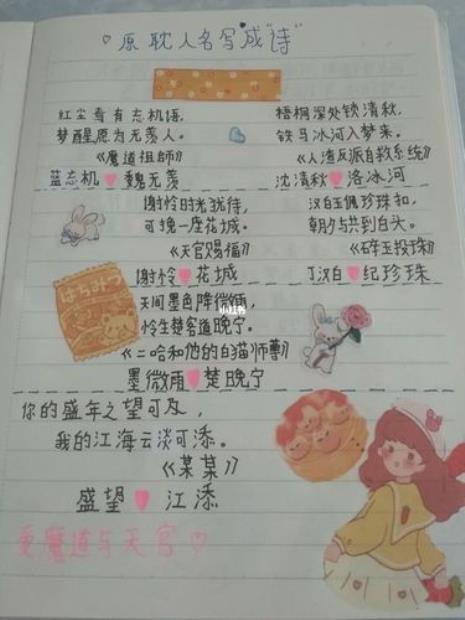 ♡原耽人名写成"诗"
红尘看有忘机语,
梦醒愿为无羡人。
《魔道祖師》
蓝忘机 魏无羡
梧桐深处锁清秋,
铁马冰河入梦来。
《人渣反派自救系统》
沈清秋 洛冰河
谢怜时光犹待,
可挽一座花城。
《天官赐福》
谢怜 花城
汉白玉佩珍珠扣,
朝夕与共到白头。
《碎玉投珠》
丁汉白 纪珍珠
はちみつ
天间墨色降微雨,
怜生楚客道晚宁。
《二哈和他的白猫师尊》
墨微雨 楚晚宁
小红书
你的盛年之望可及,
我的江海云淡可添。
《某某》
盛望 江添
爱魔道与天官♡